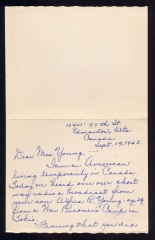 10441-97th St.
Edmonton, Alta
Canada
Sept. 19, 1943.
Dear Mrs Young:—
I am an American
living temporarily in Canada
Today we heard over our short
way radio a broadcast from
your son Alfred R. Young, age 29
from a War Prisoners Camp in
Tokio.
Knowing what you did